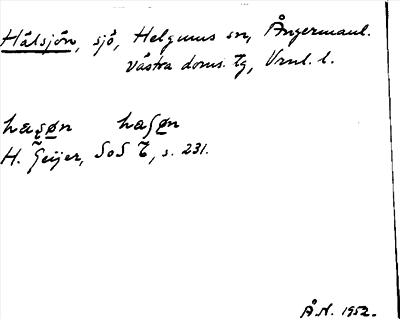 Hålsjön, sjö, Helgums sn, Ångermanl.
västra doms. tg, Vrnl. l.
hasøn haʃøn
H. Geijer, SoS 7, s. 231.
Å.N. 1952.